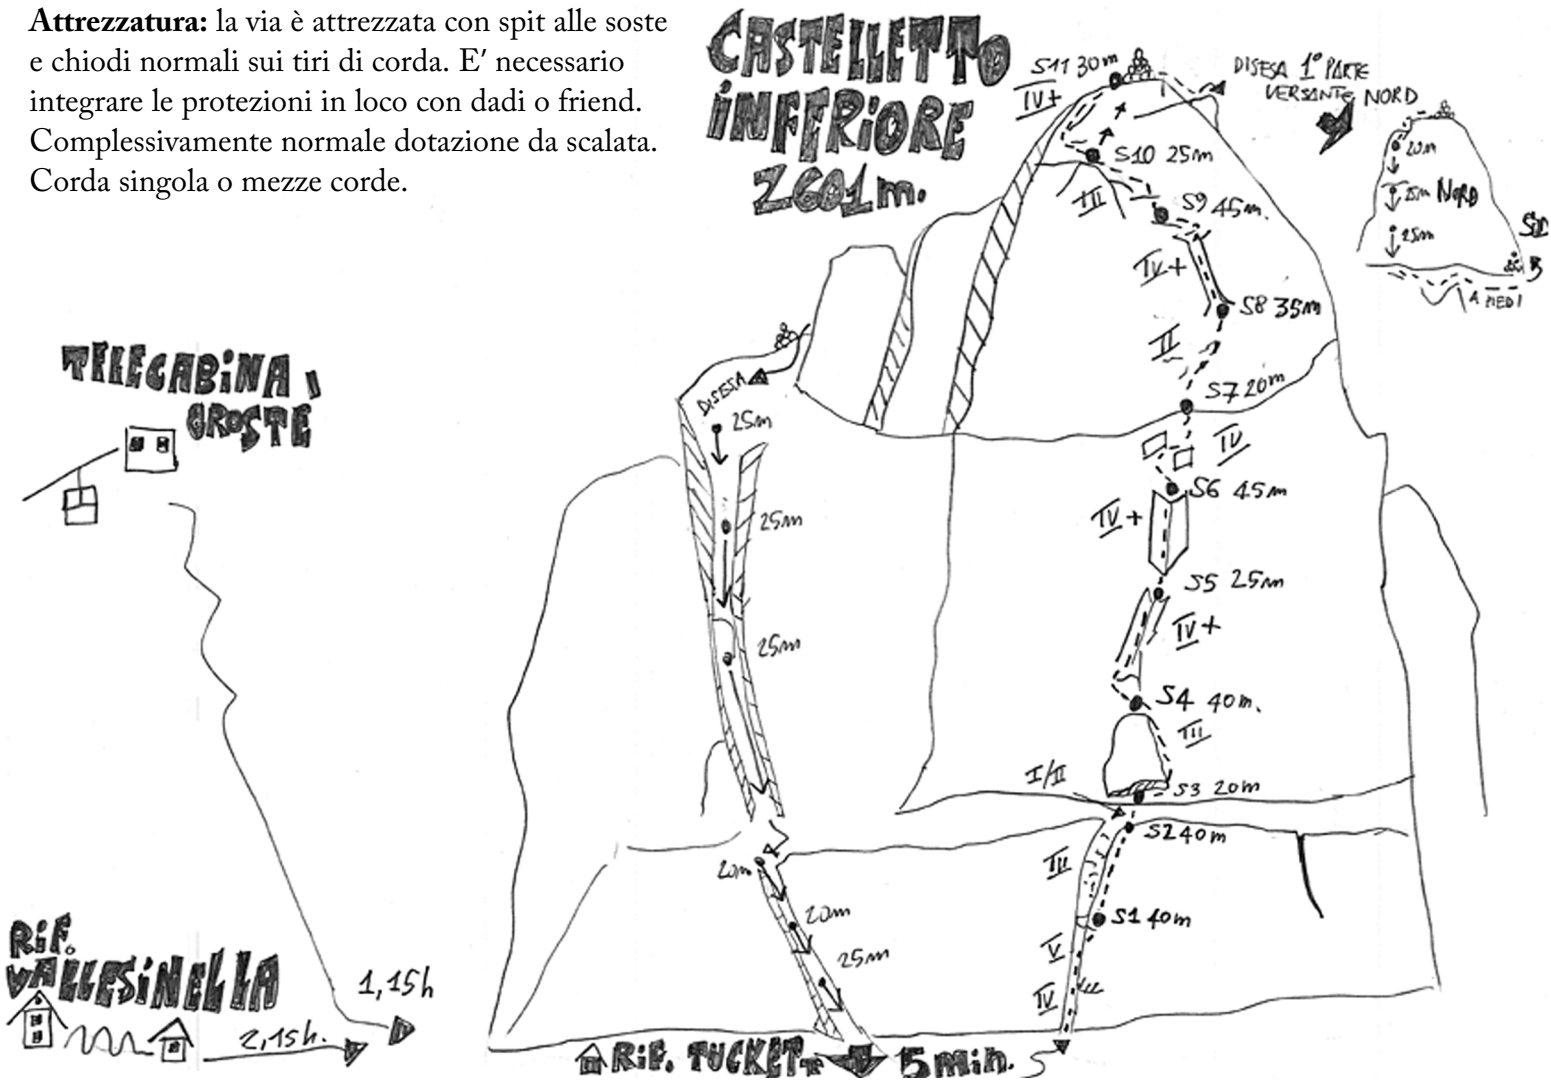 Attrezzatura: la via è attrezzata con spit alle soste
e chiodi normali sui tiri di corda. E' necessario
integrare le protezioni in loco con dadi o friend.
Complessivamente normale dotazione da scalata.
Corda singola o mezze corde.
CASTELLETTO
INFERIORE
2601m.
S11 30m
IV+
DISESA 1° PARTE
VERSANTE NORD
S10 25m
III
S9 45m.
IV+
S8 35m
II
S7 20m
IV
S6 45m
IV+
S5 25m
IV+
S4 40m.
III
I/II
S3 20m
S2 40m
III
S1 40m
V
IV
20m
25m NORD
25m
SUD
A PIEDI
DISESA
25m
25m
25m
20m
20m
25m
TELECABINA
GROSTE
RIF.
VALLESINELLA
1,15h
2,15h.
RIF. TUCKETT
5 min.